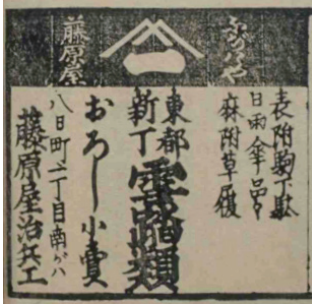 ふぢはらや
一
藤原屋
表附駒下駄
日雨傘品々
麻附草履
東都
新丁
雪踏類
おろし小賣
八日町二丁目南がハ
藤原屋治兵工